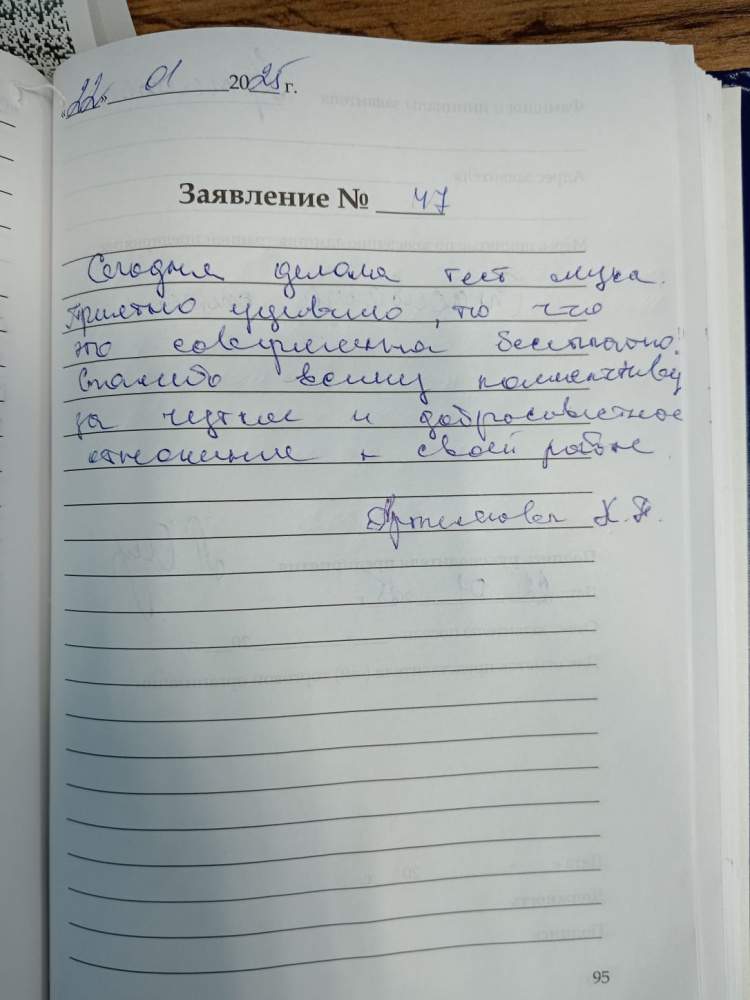 "22" 01 2025 г.
Заявление № 47
Сегодня делала тест мука.
Приятно удивило, то что
это совершенно бесплатно!
Спасибо всему коллективу
за чуткое и добросовестное
отношение к своей работе.
К.Т.
95